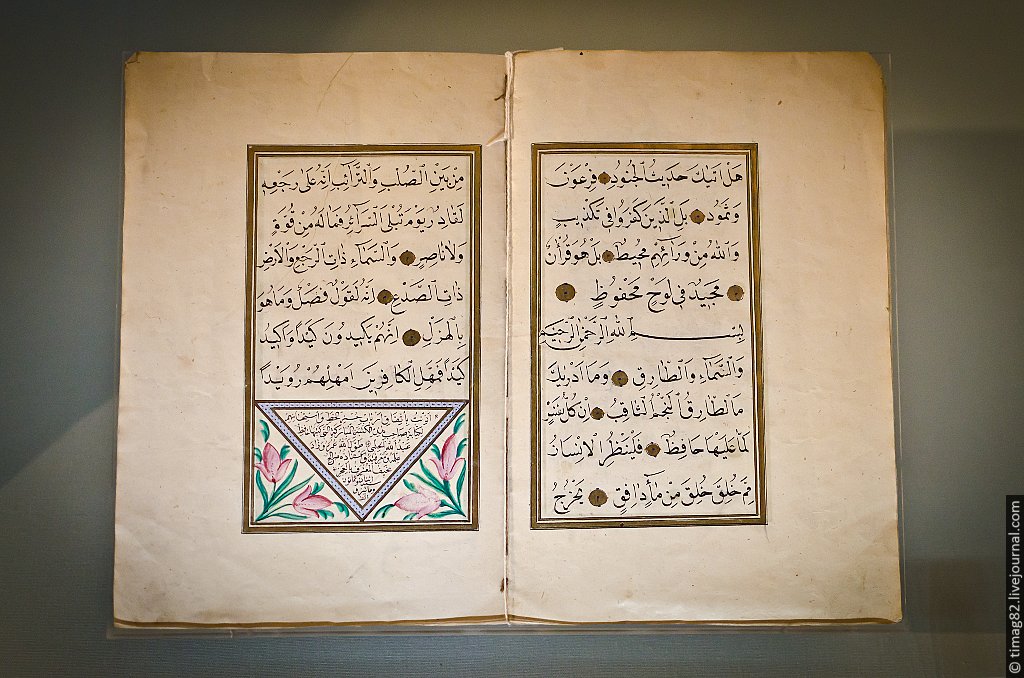 هَلْ اَتٰيكَ حَدٖيثُ الْجُنُودِ فِرْعَوْنَ
وَثَمُودَ بَلِ الَّذٖينَ كَفَرُوا فٖى تَكْذٖيبٍ
وَاللّٰهُ مِنْ وَرَٓائِهِمْ مُحٖيطٌ بَلْ هُوَ قُرْاٰنٌ
مَجٖيدٌ فٖى لَوْحٍ مَحْفُوظٍ
بِسْمِ اللّٰهِ الرَّحْمٰنِ الرَّحٖيمِ
وَالسَّمَٓاءِ وَالطَّارِقِ وَمَٓا اَدْرٰيكَ
مَا الطَّارِقُ اَلنَّجْمُ الثَّاقِبُ اِنْ كُلُّ نَفْسٍ
لَمَّا عَلَيْهَا حَافِظٌ فَلْيَنْظُرِ الْاِنْسَانُ
مِمَّ خُلِقَ خُلِقَ مِنْ مَٓاءٍ دَافِقٍ يَخْرُجُ
مِنْ بَيْنِ الصُّلْبِ وَالتَّرَٓائِبِ اِنَّهُ عَلٰى رَجْعِهٖ
لَقَادِرٌ يَوْمَ تُبْلَى السَّرَٓائِرُ فَمَا لَهُ مِنْ قُوَّةٍ
وَلَا نَاصِرٍ وَالسَّمَٓاءِ ذَاتِ الرَّجْعِ وَالْاَرْضِ
ذَاتِ الصَّدْعِ اِنَّهُ لَقَوْلٌ فَصْلٌ وَمَا هُوَ
بِالْهَزْلِ اِنَّهُمْ يَكٖيدُونَ كَيْدًا وَاَكٖيدُ
كَيْدًا فَمَهِّلِ الْكَافِرٖينَ اَمْهِلْهُمْ رُوَيْدًا
© timag82.livejournal.com